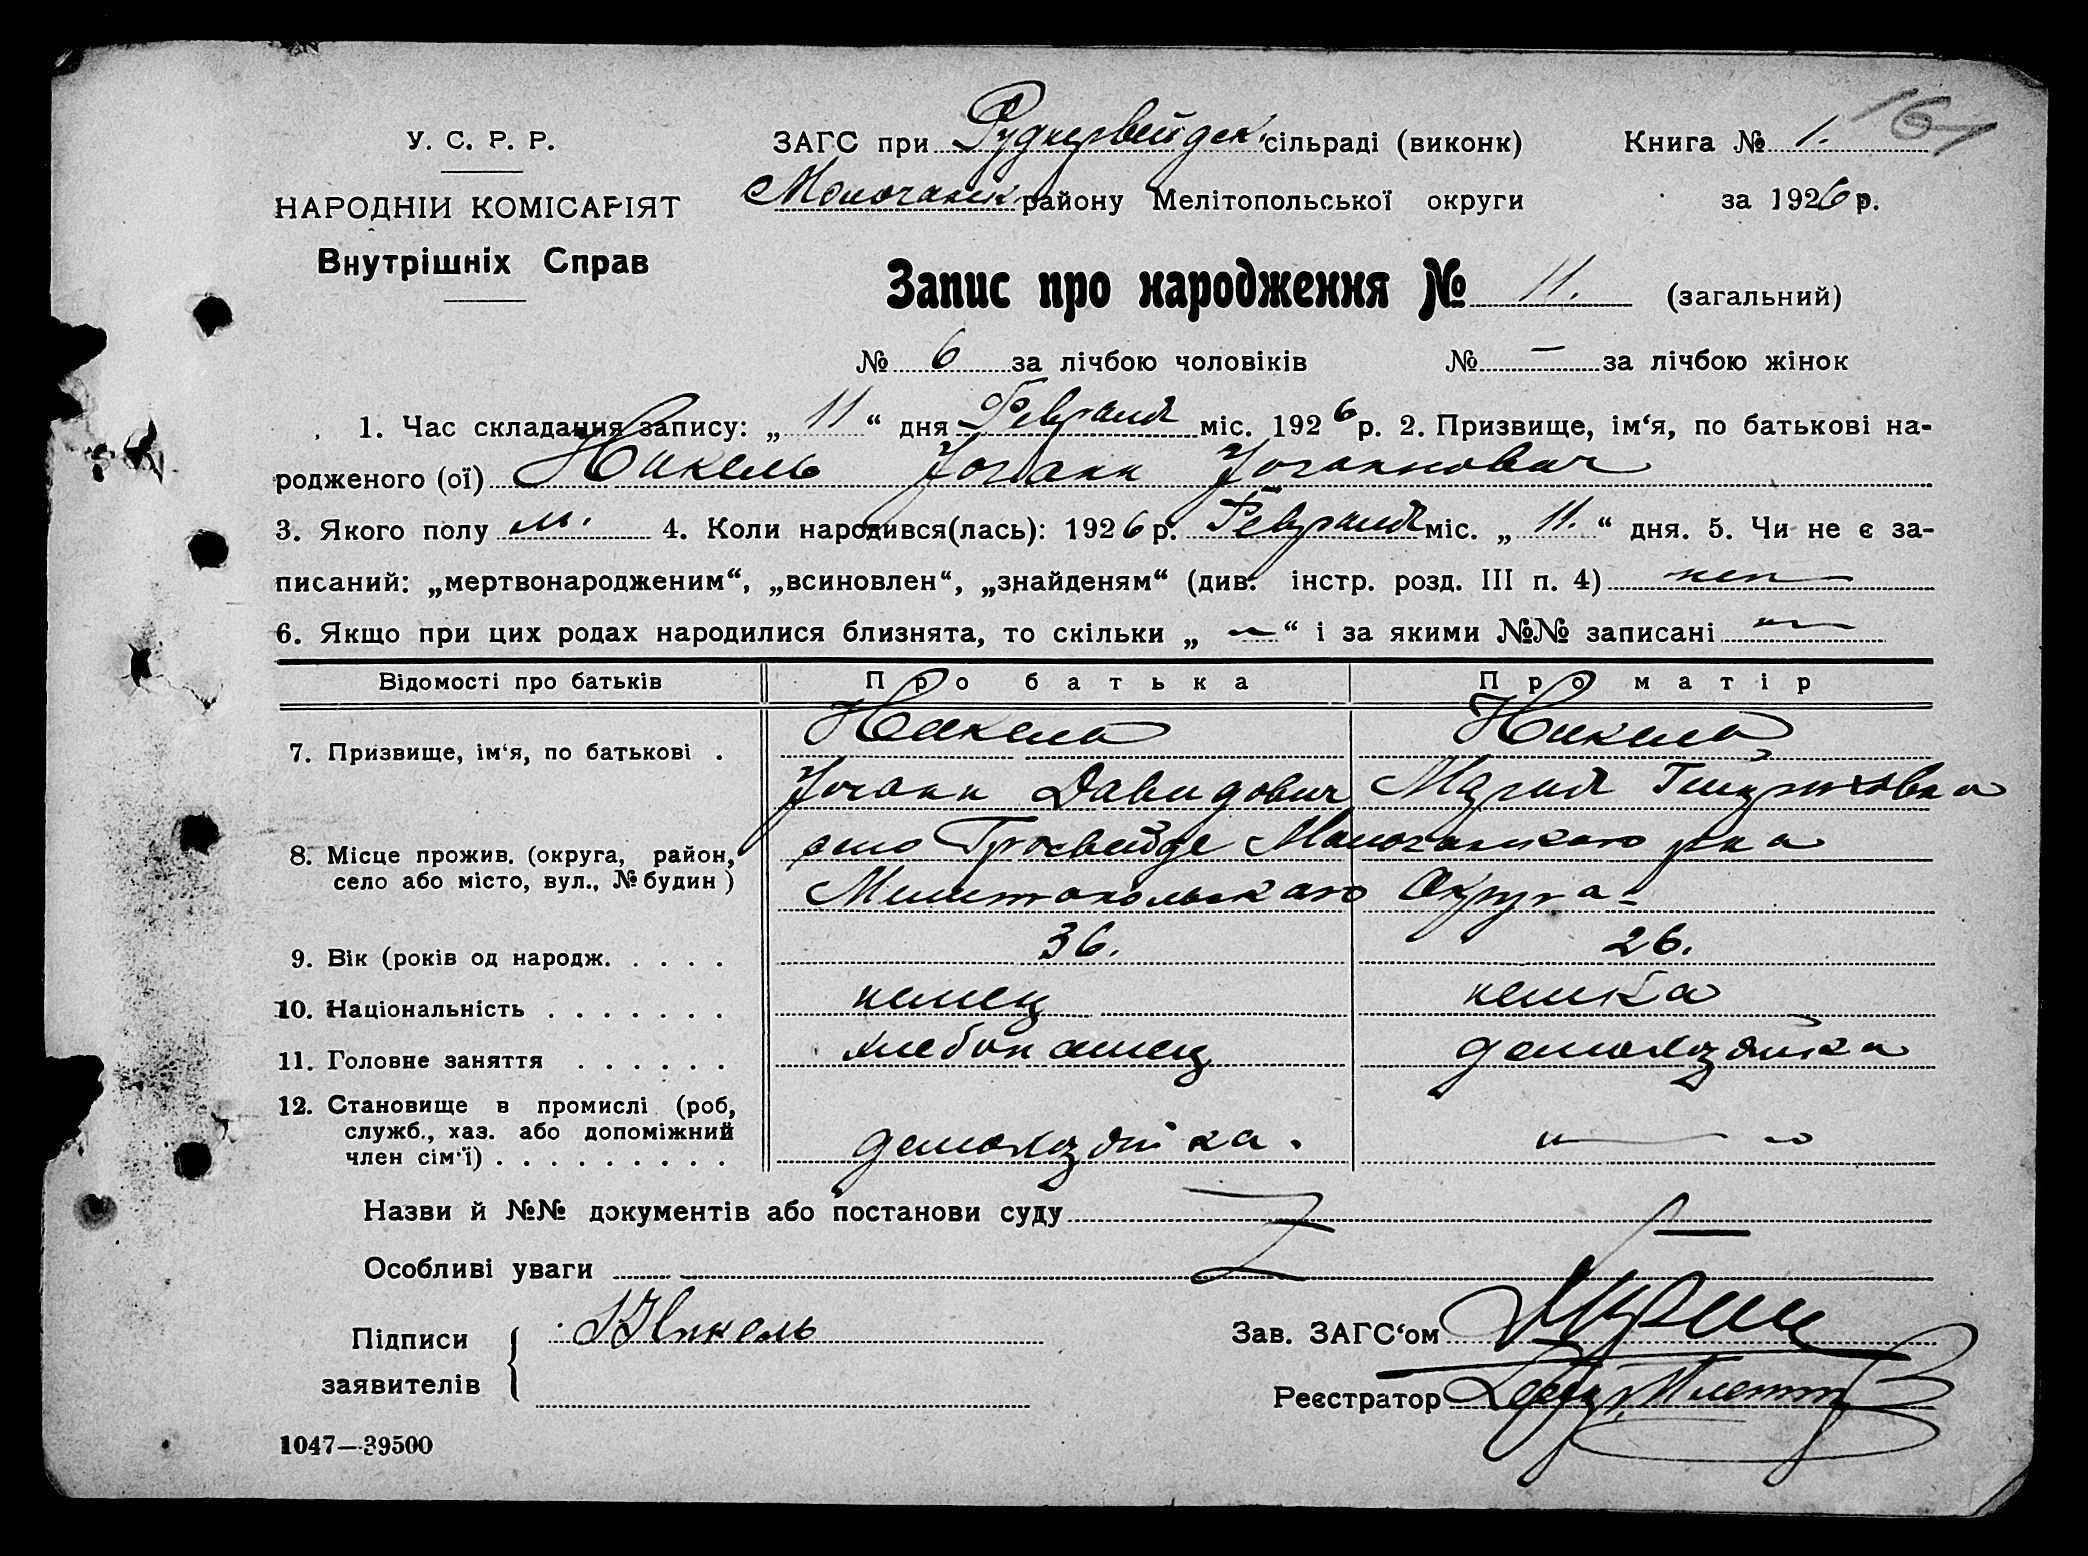 У. С. Р. Р.
НАРОДНІЙ КОМІСАРІЯТ
Внутрішніх Справ
ЗАГС при Руднервейдск. сільраді (виконк)
Молочанск. району Мелітопольської округи
Книга № 1. 
за 1926 р.
Запис про народження № 11. (загальний)
№ 6 за лічбою чоловіків № — за лічбою жінок
1. Час складання запису: „ 11 “ дня Февраля міс. 1926 р. 2. Призвище, ім‘я, по батькові на-
родженого (ої) Никель Іоганн Іоганнович
3. Якого полу м. 4. Коли народився(лась): 1926 р. Февраля міс. „ 11. “ дня. 5. Чи не є за-
писаний: „мертвонародженим“, „всиновлен“, „знайденям“ (див. інстр. розд. III п. 4) нет
6. Якщо при цих родах народилися близнята, то скільки „ — “ і за якими №№ записані —
Відомості про батьків Про батька Про матір
7. Призвище, ім‘я, по батькові . Никель Никель
Іоганн Давидович Мария
8. Місце прожив. (округа, район, село або місто, вул., № будин) село Гросвейде Молочанского р-на
Мелитопольского Округа
9. Вік (років од народж. . . . . 36. 26.
10. Національність . . . . . . . немец немка
11. Головне заняття . . . . . . хлебопашец домохозяйка
12. Становище в промислі (роб,
служб., хаз. або допоміжний
член сім‘ї) . . . . . . . . . домохозяйка. — „ —
Назви й №№ документів або постанови суду —
Особливі уваги
Підписи
заявителів
Никель
Зав. ЗАГС‘ом
Реєстратор
1047—39500